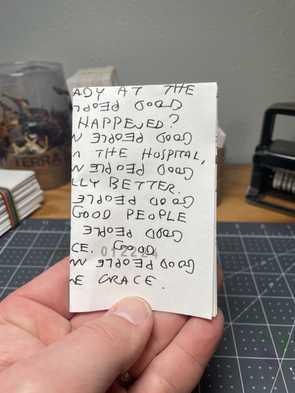 ADY AT THE
GOOD PEOPLE
HAPPENED?
GOOD PEOPLE
THE HOSPITAL,
GOOD PEOPLE
LLY BETTER.
GOOD PEOPLE
GOOD PEOPLE
GOOD PEOPLE
CE. GOOD
012224
GOOD PEOPLE
E GRACE.
TERRA